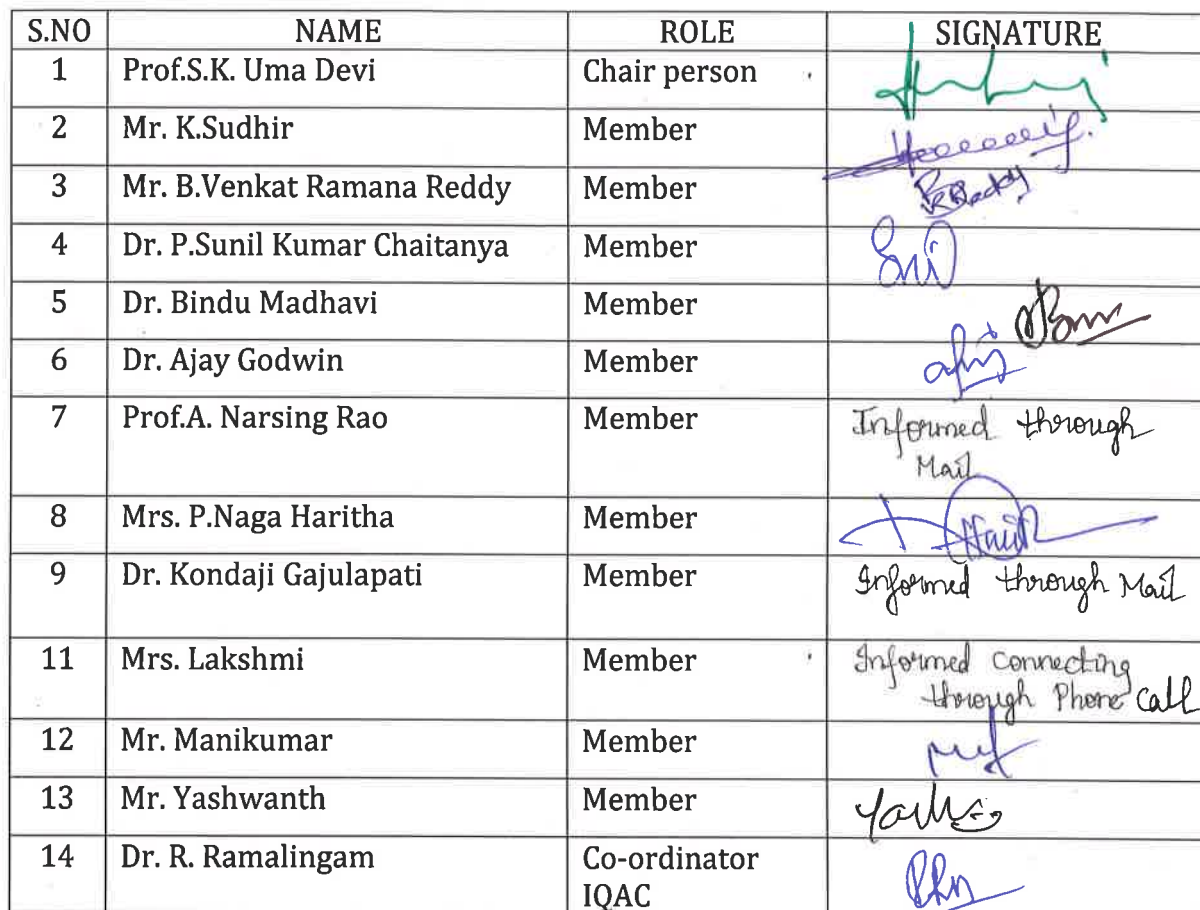 S.NO NAME ROLE SIGNATURE
1 Prof.S.K. Uma Devi Chair person
2 Mr. K.Sudhir Member
3 Mr. B.Venkat Ramana Reddy Member
4 Dr. P.Sunil Kumar Chaitanya Member
5 Dr. Bindu Madhavi Member
6 Dr. Ajay Godwin Member
7 Prof.A. Narsing Rao Member Informed through
Mail
8 Mrs. P.Naga Haritha Member
9 Dr. Kondaji Gajulapati Member Informed through Mail
11 Mrs. Lakshmi Member Informed connecting
through Phone call
12 Mr. Manikumar Member
13 Mr. Yashwanth Member
14 Dr. R. Ramalingam Co-ordinator
IQAC